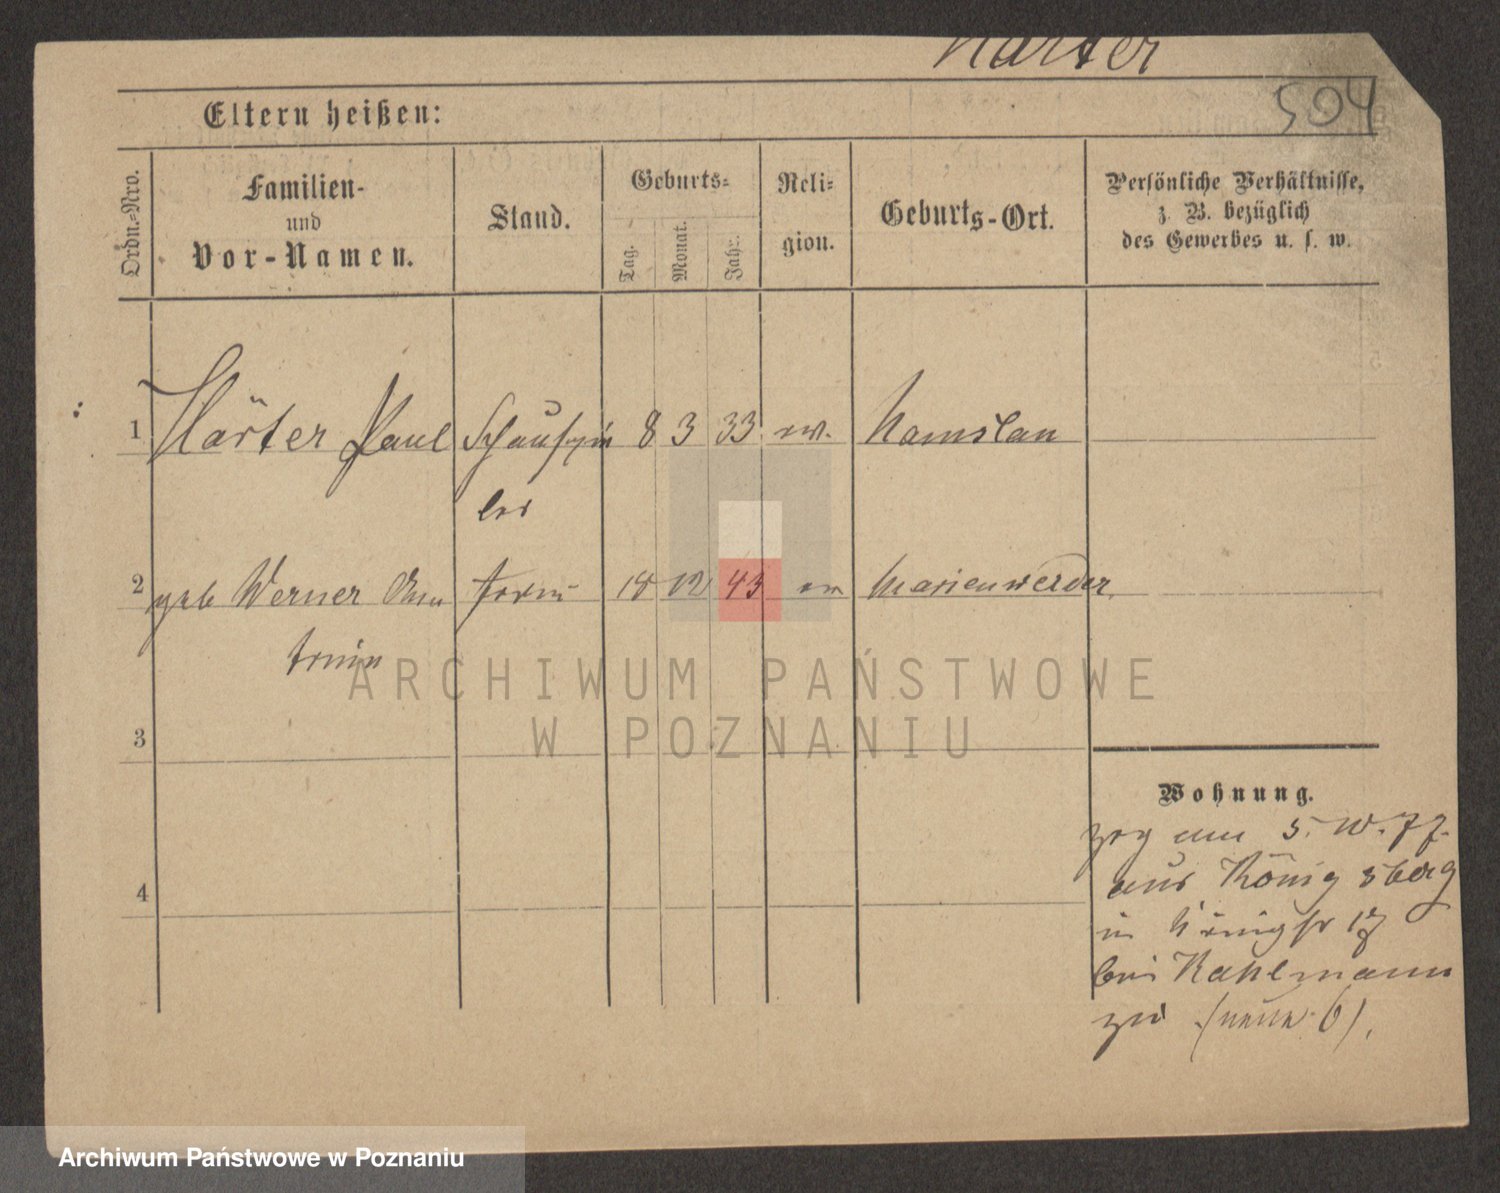 Härter
504
Eltern heißen:
Ordn.-Nro.
Familien-
und
Vor-Namen.
Stand.
Geburts-
Tag.
Monat.
Jahr.
Reli-
gion.
Geburts-Ort.
Persönliche Verhältnisse,
z. B. bezüglich
des Gewerbes u. s. w.
1 Härter Paul Schauspie 8 3 33 ev. Namslau
ler
2 geb Werner 12 43 ev Marienwerder
3
4
Wohnung.
zog am 5. 77.
aus Königsberg
in Königstr 17
bei Kahlmann
zu (neue 6).
ARCHIWUM PAŃSTWOWE
W POZNANIU
Archiwum Państwowe w Poznaniu